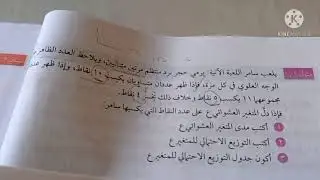 يلعب سامر اللعبة الآتية: يرمي حجر نرد منتظم مرتين متتاليتين، ويلاحظ العدد الظاهر
الوجه العلوي في كل مرة، فإذا ظهر عددان متساويان يكسب ١٠ نقاط، وإذا ظهر عددان
مجموعهما ١١ يكسب ٥ نقاط وخلاف ذلك يخسر ٤ نقاط.
فإذا دلّ المتغير العشوائي ع على عدد النقاط التي يكسبها سامر:
١ أكتب مدى المتغير العشوائي ع
٢ أكتب التوزيع الاحتمالي للمتغير ع
٣ أكوّن جدول التوزيع الاحتمالي للمتغير ع
KINEMASTER